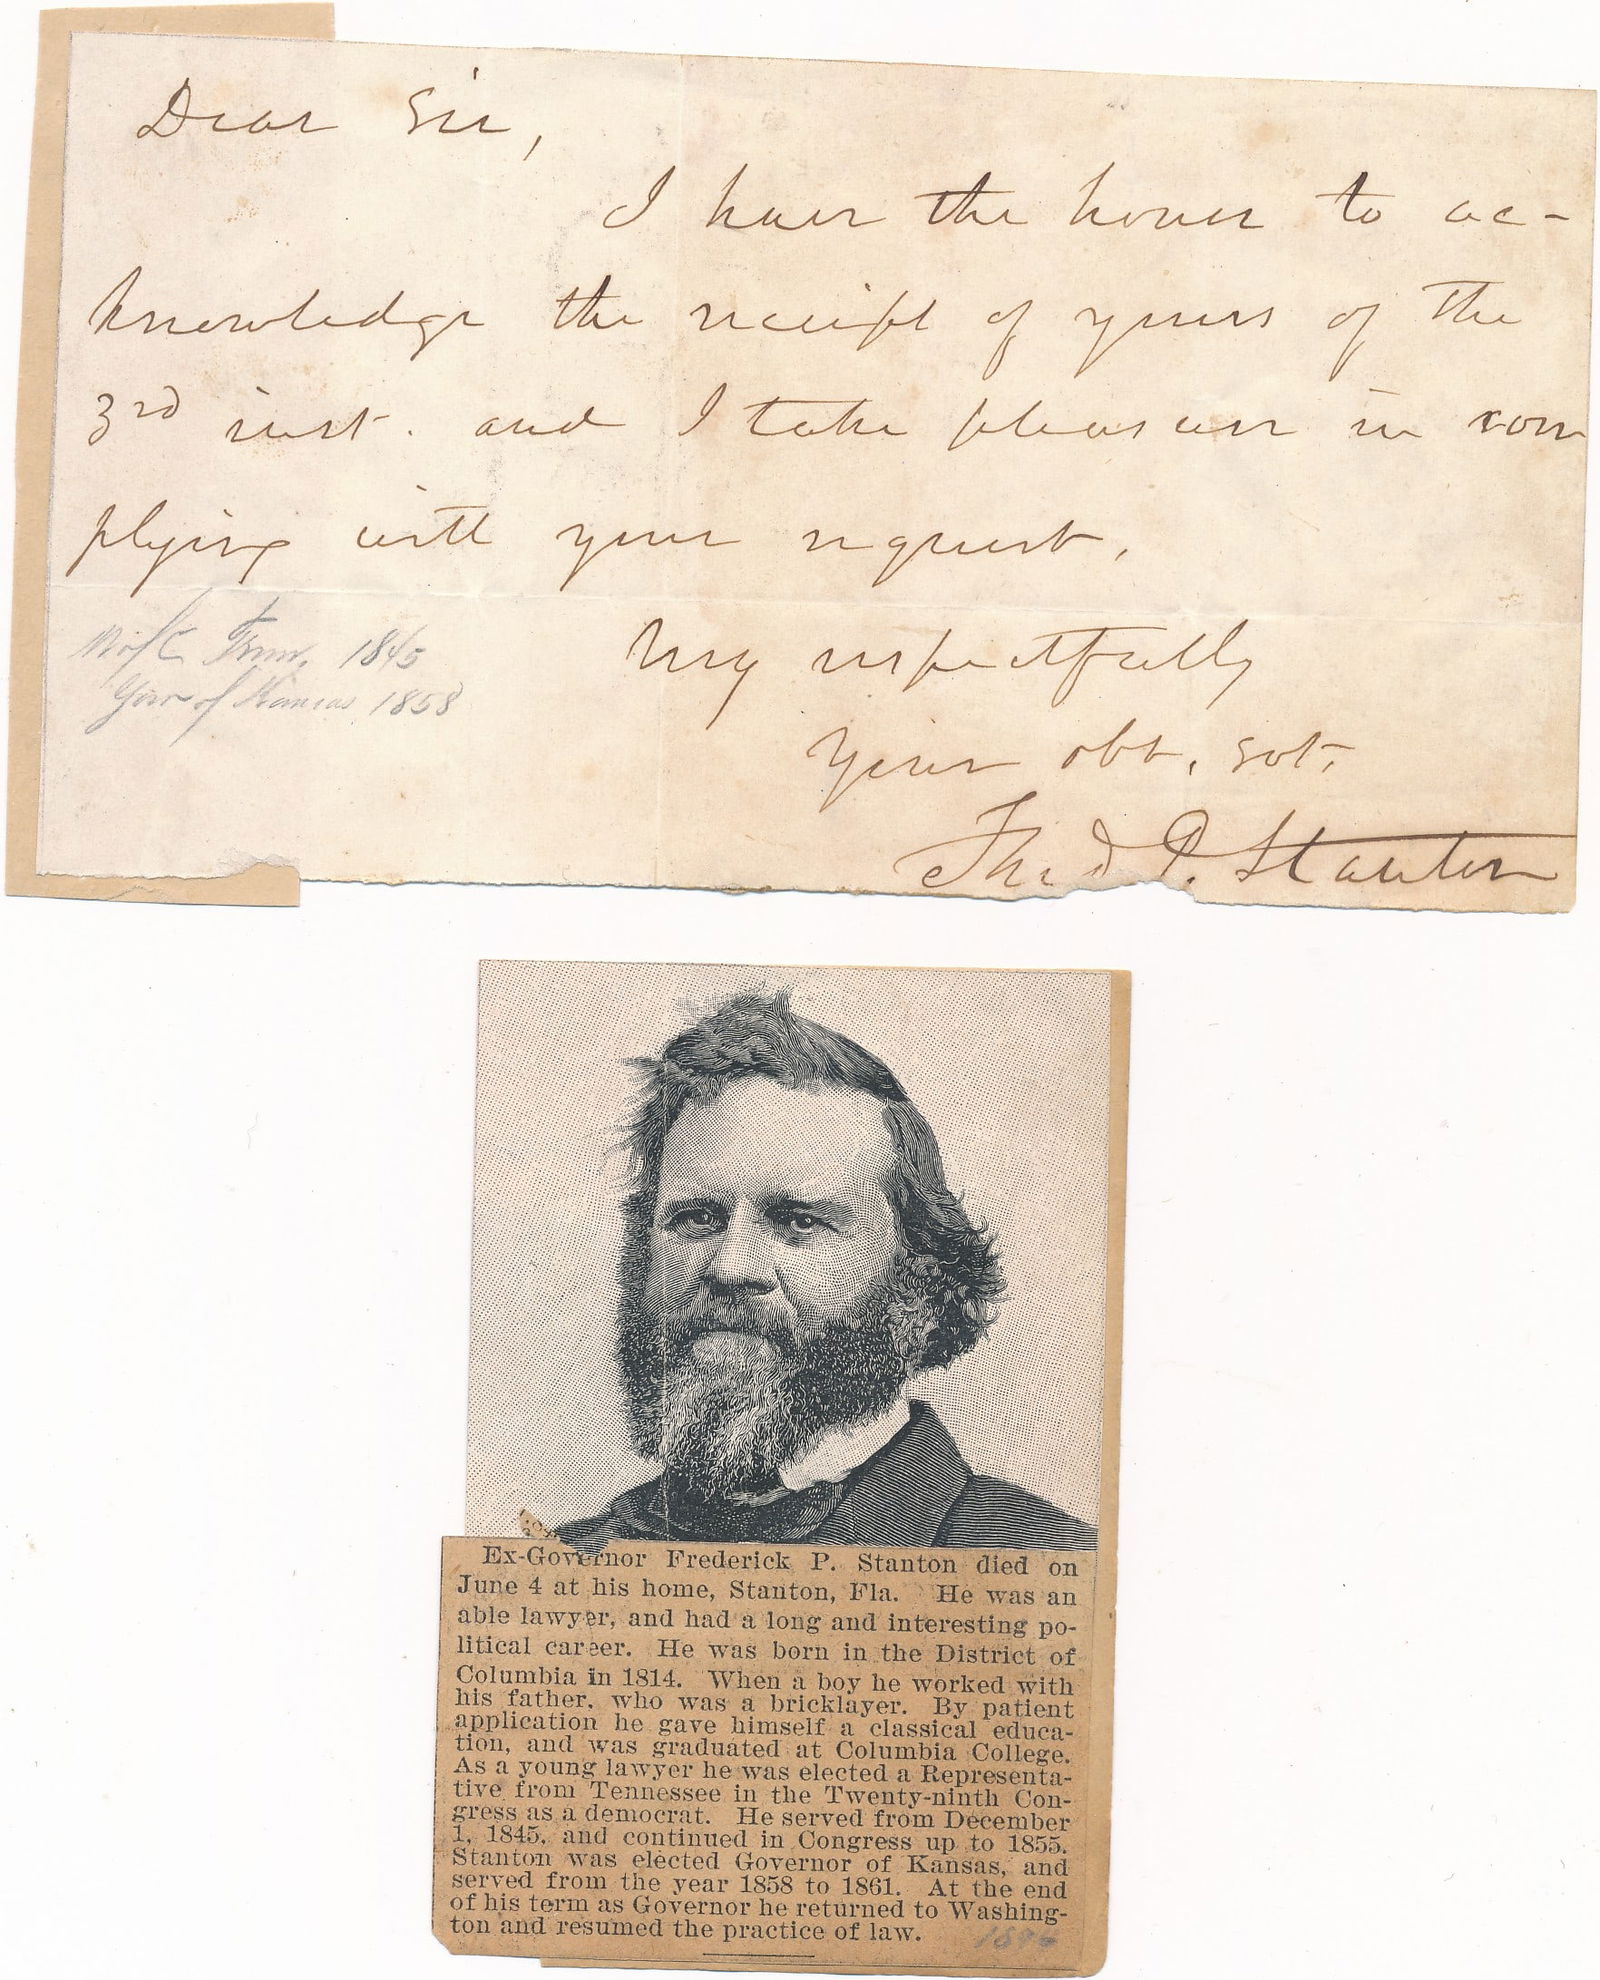 Dear Sir,
I have the honor to ac-
knowledge the receipt of yours of the
3rd inst. and I take pleasure in com
plying with your request.
M of C Tenn. 1845
Gov of Kansas 1858
Very respectfully
Your obt. svt.
Fred P. Stanton
Ex-Governor Frederick P. Stanton died on
June 4 at his home, Stanton, Fla. He was an
able lawyer, and had a long and interesting po-
litical career. He was born in the District of
Columbia in 1814. When a boy he worked with
his father, who was a bricklayer. By patient
application he gave himself a classical educa-
tion, and was graduated at Columbia College.
As a young lawyer he was elected a Representa-
tive from Tennessee in the Twenty-ninth Con-
gress as a democrat. He served from December
1, 1845, and continued in Congress up to 1855.
Stanton was elected Governor of Kansas, and
served from the year 1858 to 1861. At the end
of his term as Governor he returned to Washing-
ton and resumed the practice of law.